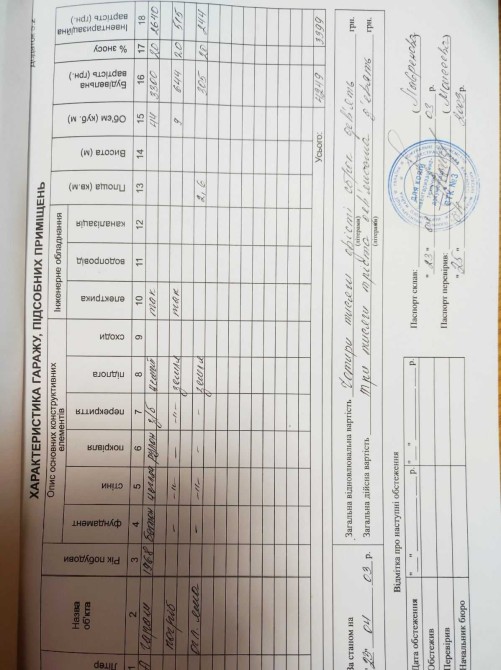 ХАРАКТЕРИСТИКА ГАРАЖУ, ПІДСОБНИХ ПРИМІЩЕНЬ
Літер
Назва об'єкта
Рік побудови
Опис основних конструктивних елементів
фундамент
стіни
покрівля
перекриття
підлога
сходи
Інженерне обладнання
електрика
водопровід
каналізація
Площа (кв.м)
Висота (м)
Об'єм (куб. м)
Будівельна вартість (грн.)
% зносу
Інвентаризаційна вартість (грн.)
1 2 3 4 5 6 7 8 9 10 11 12 13 14 15 16 17 18
гараж 1968 бетон цегла рулон з/б так 44 3300 20 2640
погріб – -"- -"- -"- земля так 9 644 20 515
– -"- -"- земля 2,6 305 20 244
Усього: 4249 3399
За станом на
25 04 03 р.
Загальна відновлювальна вартість Чотири тисячі двісті сорок дев'ять грн.
(літерами)
Загальна дійсна вартість три тисячі триста дев'яносто дев'ять грн.
(літерами)
Відмітка про наступні обстеження
Дата обстеження " " р. " " р.
Обстежив
Перевірив
Начальник бюро
Паспорт склав:
" 23 " 04 03 р.
Паспорт перевірив:
" 25 " 2003 р.
Для копій
БТК №3